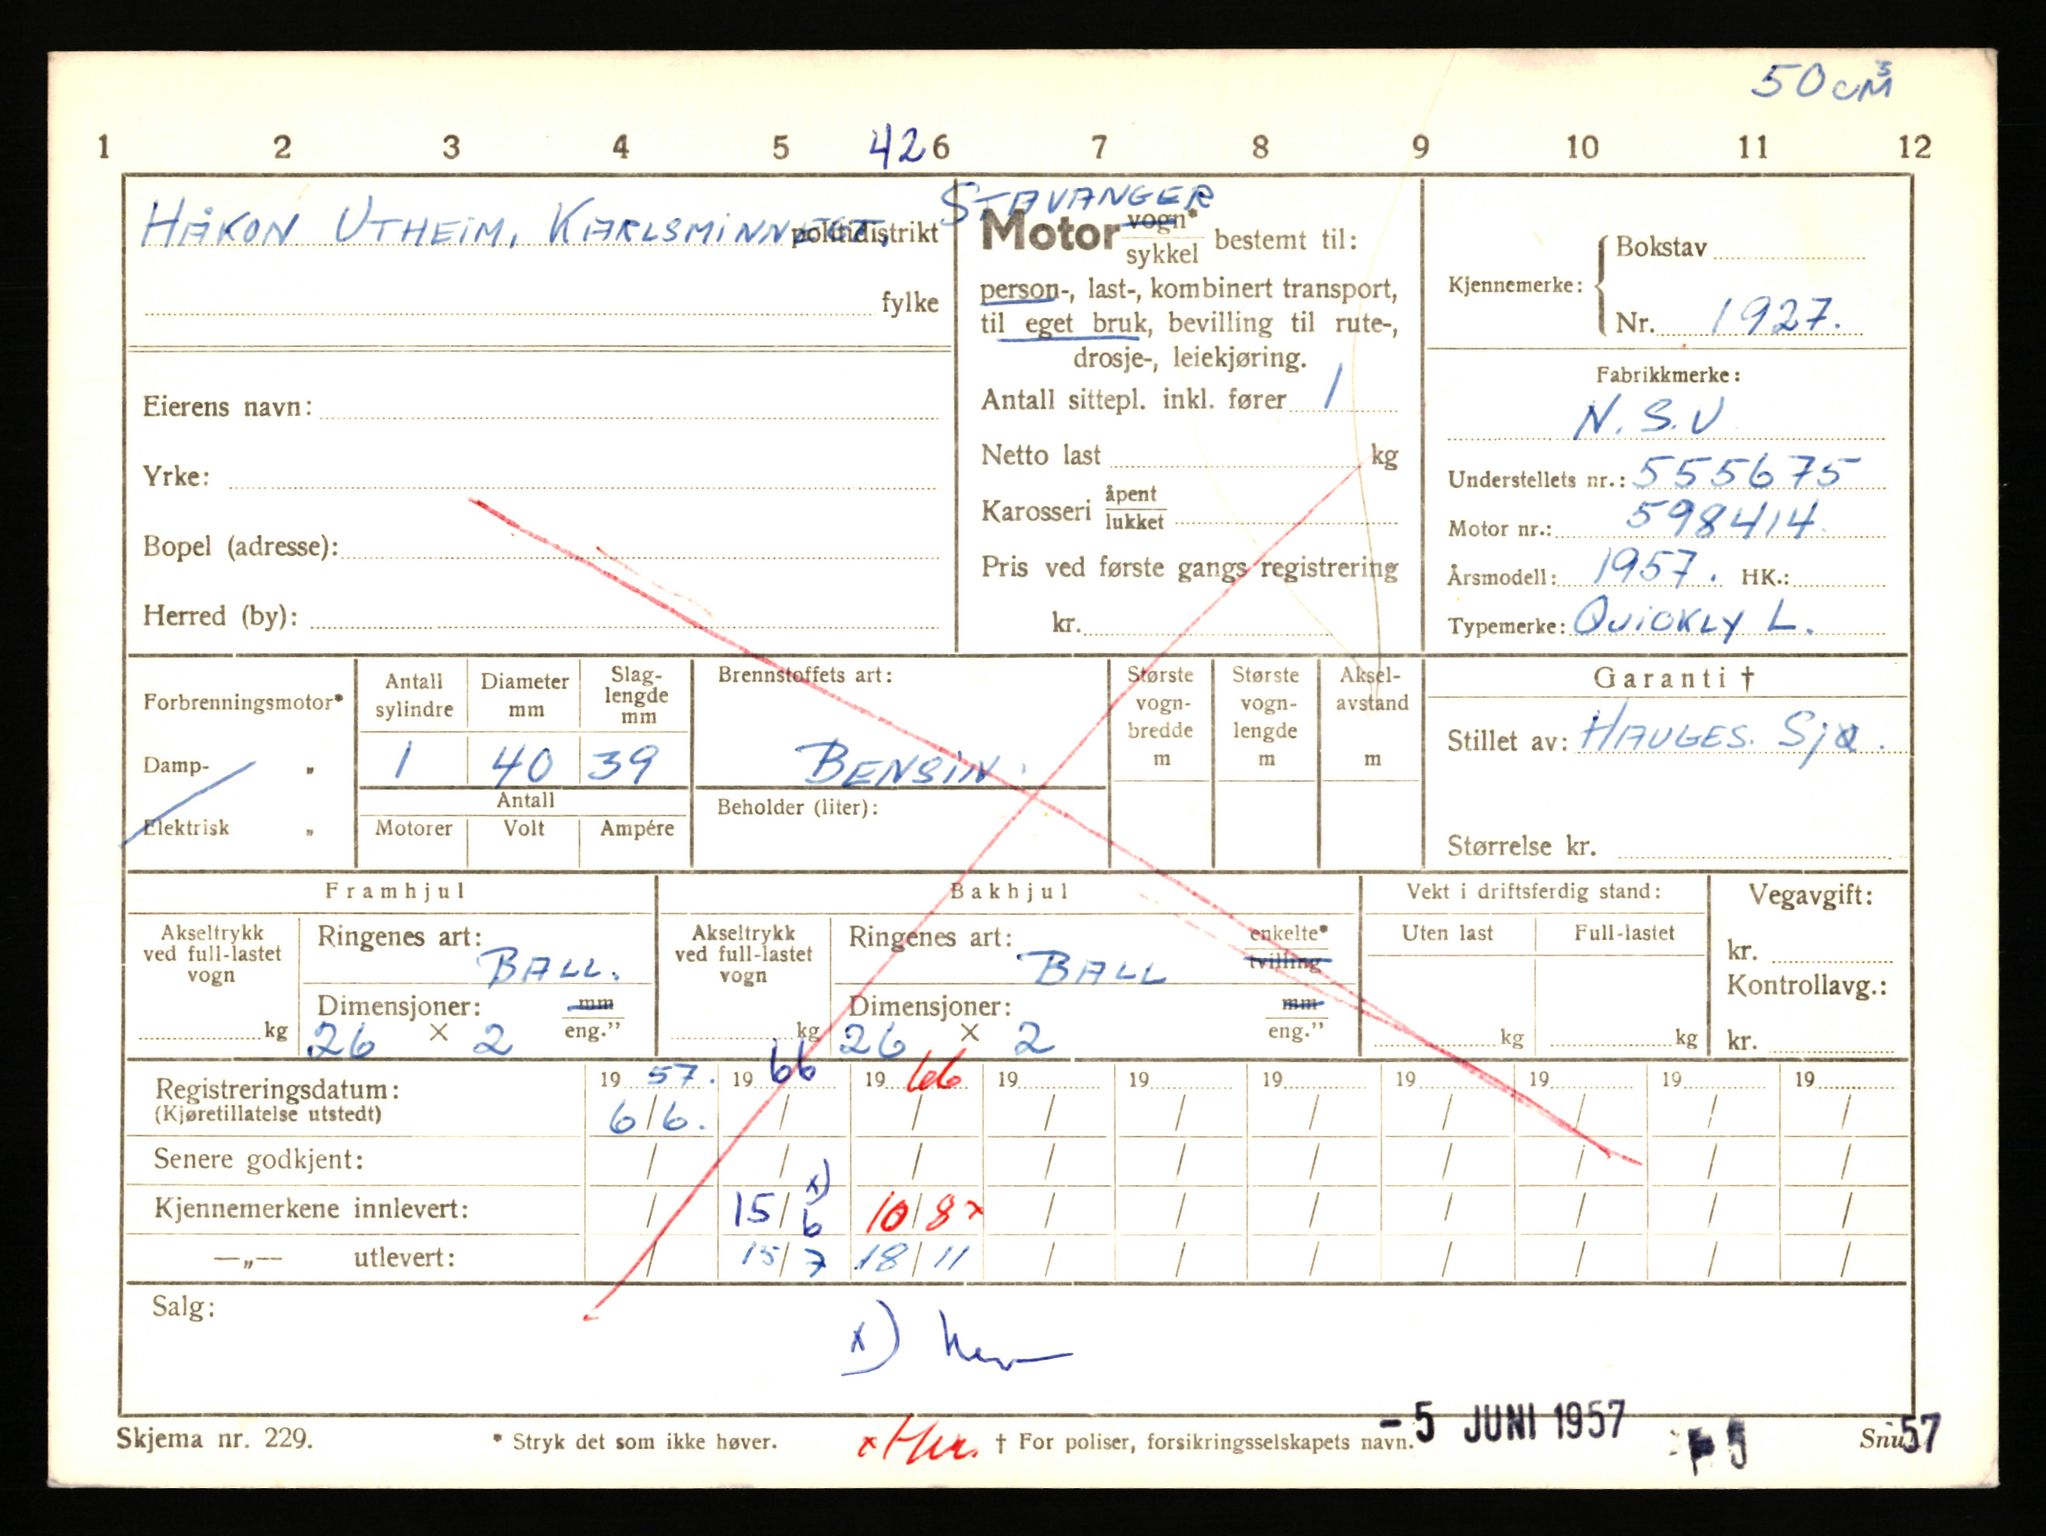 50 cm³
1 2 3 4 5 42 6 7 8 9 10 11 12
HÅKON UTHEIM, KARLSMINNEGT. STAVANGER
politidistrikt
fylke
Eierens navn:
Yrke:
Bopel (adresse):
Herred (by):
Motor vogn* sykkel bestemt til:
person-, last-, kombinert transport,
til eget bruk, bevilling til rute-,
drosje-, leiekjøring.
Antall sittepl. inkl. fører 1
Netto last kg
Karosseri åpent lukket
Pris ved første gangs registrering
kr.
Kjennemerke: Bokstav
Nr. 1927.
Fabrikkmerke:
N.S.U
Understellets nr.: 555675
Motor nr.: 598414.
Årsmodell: 1957. HK.:
Typemerke: QUICKLY L.
Forbrenningsmotor*
Damp- „
Elektrisk „
Antall sylindre
Diameter mm
Slaglengde mm
1 40 39
Antall
Motorer Volt Ampére
Brennstoffets art:
BENSIN.
Beholder (liter):
Største vognbredde m
Største vognlengde m
Akselavstand m
Garanti †
Stillet av: HAUGES. Sjø.
Størrelse kr.
Framhjul
Akseltrykk ved full-lastet vogn
kg
Ringenes art:
BALL.
Dimensjoner: mm eng."
26 × 2
Bakhjul
Akseltrykk ved full-lastet vogn
kg
Ringenes art: enkelte* tvilling
BALL
Dimensjoner: mm eng."
26 × 2
Vekt i driftsferdig stand:
Uten last Full-lastet
kg kg
Vegavgift:
kr.
Kontrollavg.:
kr.
19 57. 19 66 19 66 19 19 19 19 19 19 19
Registreringsdatum:
(Kjøretillatelse utstedt)
6/6. / / / / / / / / /
Senere godkjent: / / / / / / / / / /
Kjennemerkene innlevert: / 15/6 x) 10/8 x / / / / / / /
—„— utlevert: / 15/7 18/11 / / / / / / /
Salg:
x)
- 5 JUNI 1957
Skjema nr. 229.
* Stryk det som ikke høver.
† For poliser, forsikringsselskapets navn.
5
Snu
57